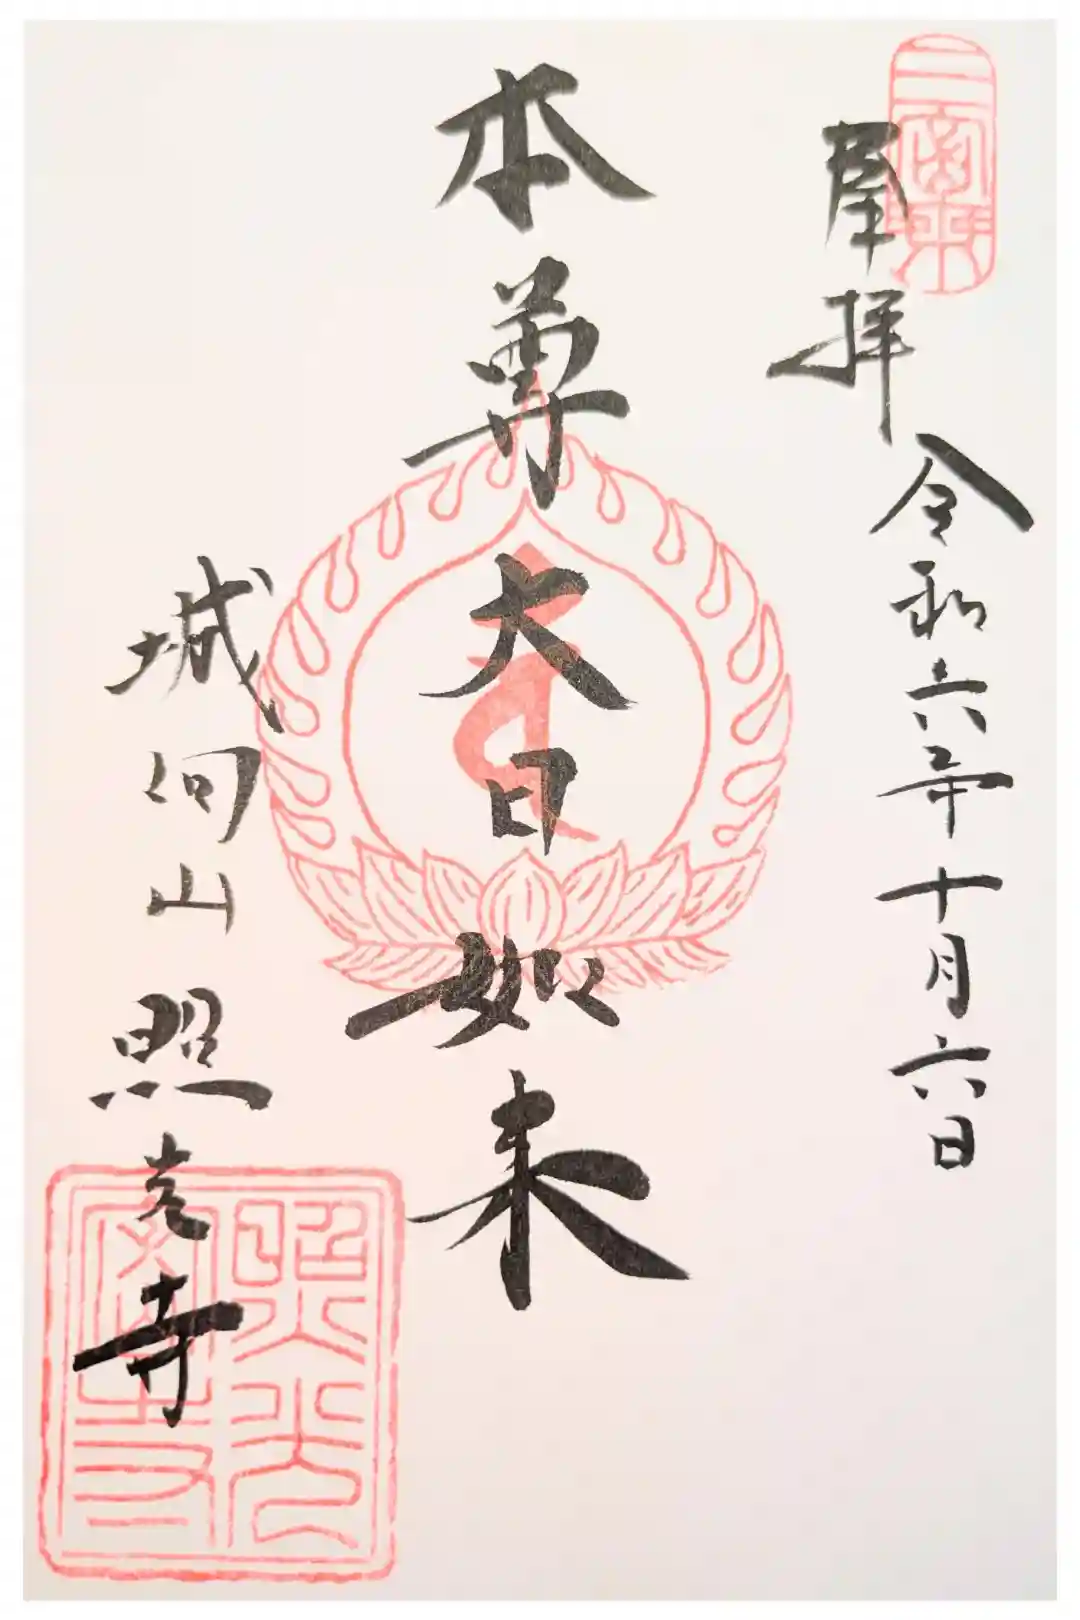 奉拝
令和六年十月六日
本尊 大日如来
城向山 照光寺